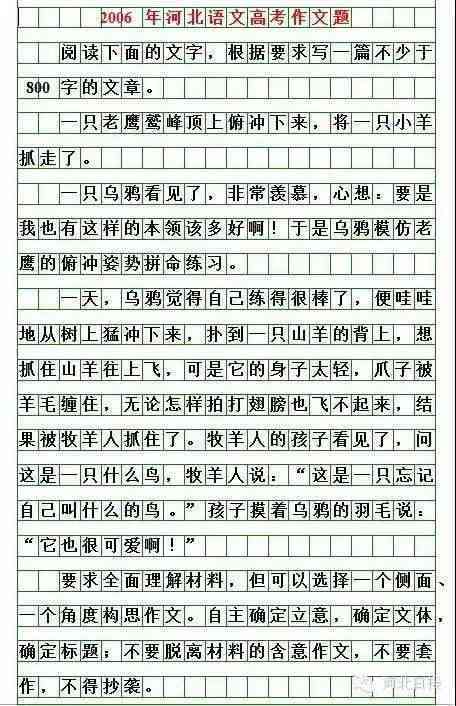 2006 年河北语文高考作文题
阅读下面的文字，根据要求写一篇不少于
800 字的文章。
一只老鹰鹫峰顶上俯冲下来，将一只小羊
抓走了。
一只乌鸦看见了，非常羡慕，心想：要是
我也有这样的本领该多好啊！于是乌鸦模仿老
鹰的俯冲姿势拼命练习。
一天，乌鸦觉得自己练得很棒了，便哇哇
地从树上猛冲下来，扑到一只山羊的背上，想
抓住山羊往上飞，可是它的身子太轻，爪子被
羊毛缠住，无论怎样拍打翅膀也飞不起来，结
果被牧羊人抓住了。牧羊人的孩子看见了，问
这是一只什么鸟，牧羊人说：“这是一只忘记
自己叫什么的鸟。”孩子摸着乌鸦的羽毛说：
“它也很可爱啊！”
要求全面理解材料，但可以选择一个侧面、
一个角度构思作文。自主确定立意，确定文体，
确定标题；不要脱离材料的含意作文，不要套
作，不得抄袭。